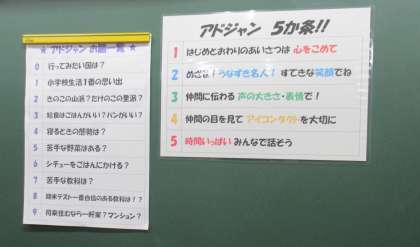 ★ アドジャン お題一覧 ★
0 行ってみたい国は？
1 小学校生活1番の思い出
2 きのこの山派？たけのこの里派？
3 給食はごはんがいい？パンがいい？
4 寝るときの態勢は？
5 苦手な野菜はある？
6 シチューをごはんにかける？
7 苦手な教科は？
8 期末テスト一番自信のある教科は！？
9 将来住むなら一軒家？マンション？
アドジャン 5か条!!
1 はじめとおわりのあいさつは 心をこめて
2 めざせ！うなずき名人！ すてきな笑顔でね
3 仲間に伝わる 声の大きさ・表情で！
4 仲間の目を見て アイコンタクトを大切に
5 時間いっぱい みんなで話そう